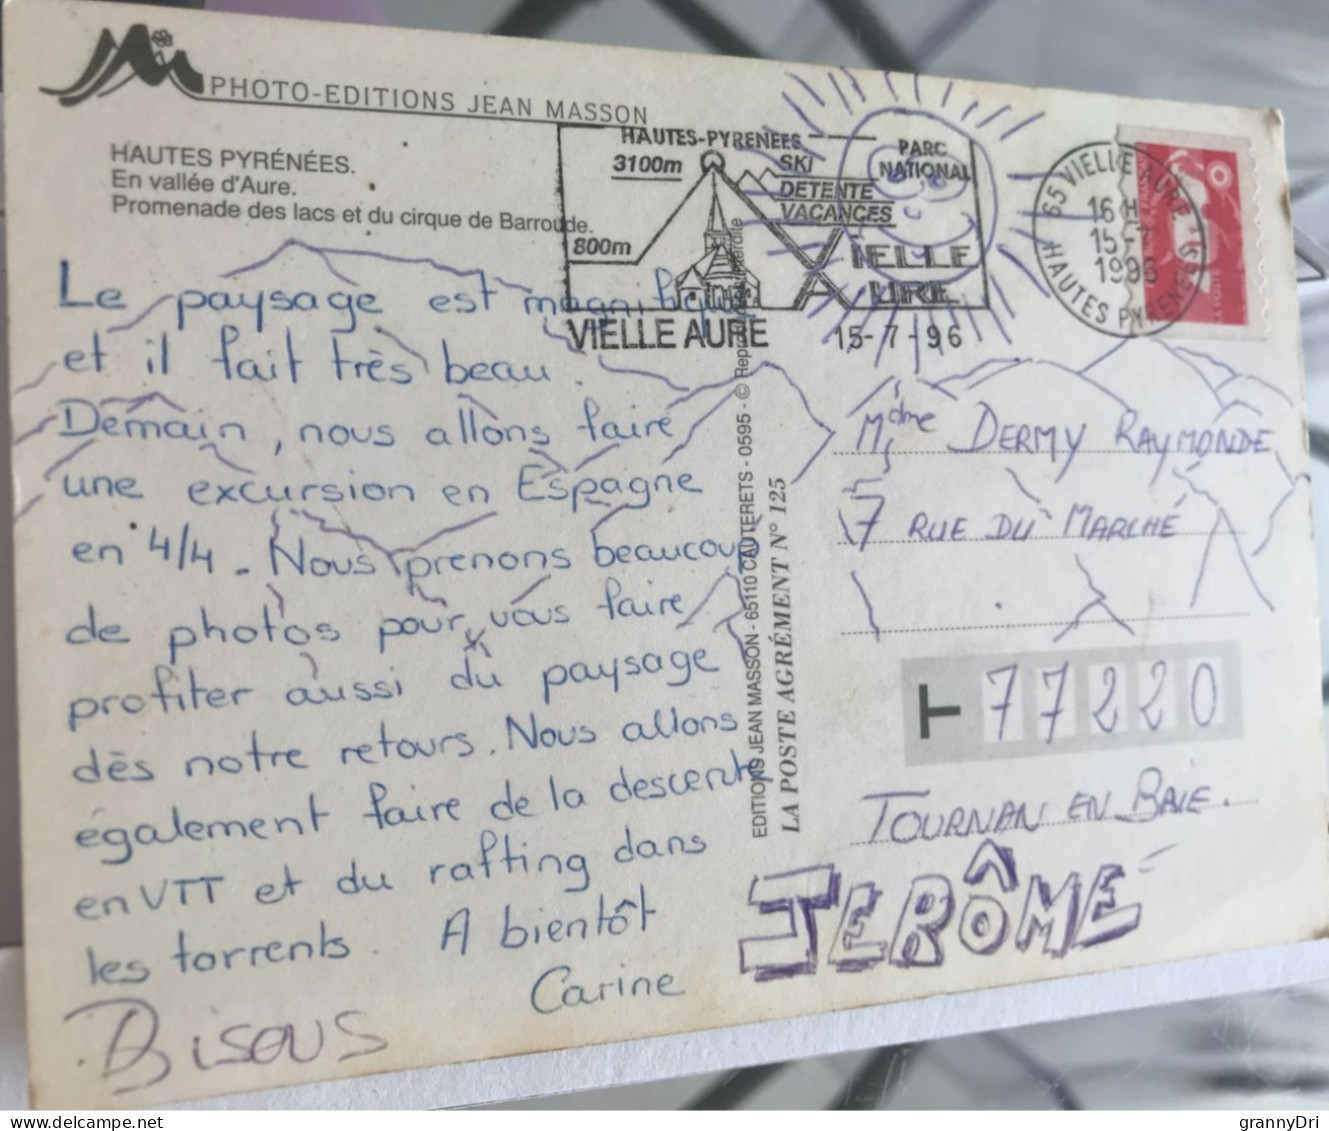 PHOTO-EDITIONS JEAN MASSON
HAUTES PYRÉNÉES.
En vallée d'Aure.
Promenade des lacs et du cirque de Barroude.
HAUTES-PYRENEES
3100m
800m
SKI
DETENTE
VACANCES
PARC
NATIONAL
VIELLE
AURE
VIELLE AURE
15-7-96
65 VIELLE AURE
16 H
15-7
1996
HAUTES PYRENEES
Le paysage est magnifique
et il fait très beau.
Demain, nous allons faire
une excursion en Espagne
en 4/4. Nous prenons beaucoup
de photos pour vous faire
profiter aussi du paysage
dès notre retours. Nous allons
également faire de la descente
en VTT et du rafting dans
les torrents. A bientôt
Carine
Bisous
EDITIONS JEAN MASSON - 65110 CAUTERETS - 0595 - © Reproduction interdite
LA POSTE AGRÉMENT N° 125
Mdme DERMY RAYMONDE
7 RUE DU MARCHÉ
T 77220
TOURNAN EN BRIE.
JERÔME
grannyDri